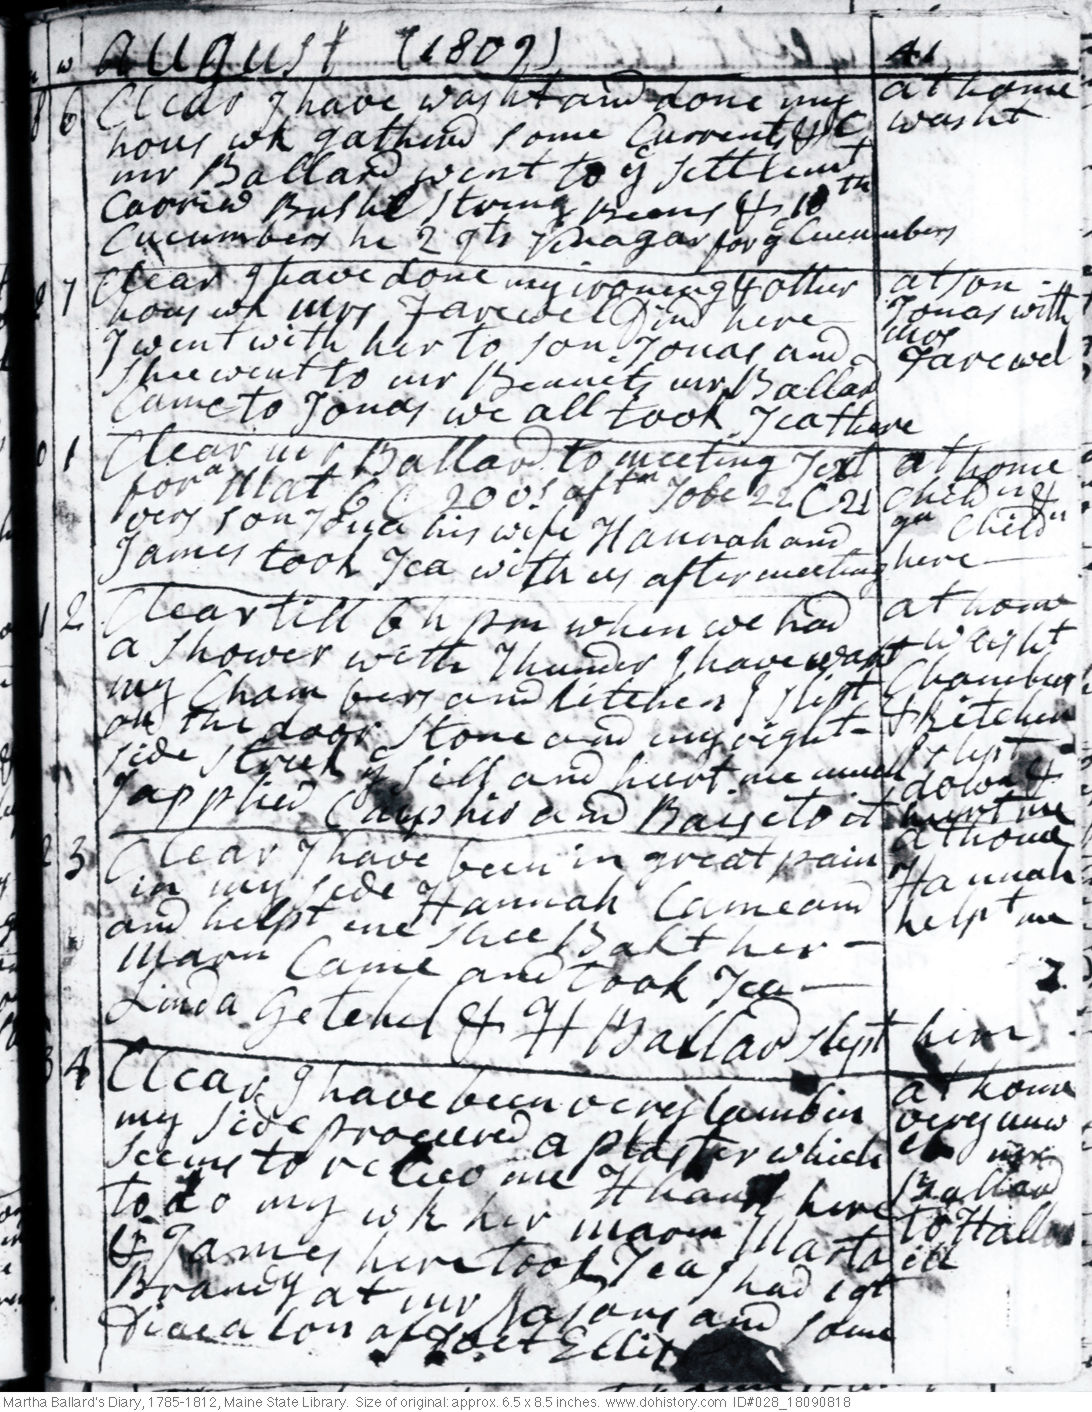 august (1809)
8 6 Clear I have washt and done my at home
hous wk gatherd some Currents &C washt
mr Ballard went to ye settlemt
Carried Bushl String Beens &
Cucumbers he 2 qts Vinagar for ye Cucumbers
7 Clear I have done my ironing & other at son
hous wk mrs Farewel Dind here Jonas with
I went with her to son Jonas and mrs
shee went to mr Bennets mr Ballard Farewel
Came to Jonas we all took Tea there
1 Clear mr Ballard to meeting Text at home
forn Mat 6 C 20 vs aftn Jobe 22 C 21 Childn &
vers son Jona his wife Hannah and gn Childn
James took Tea with us after meeting here
2 Clear till 6 h pm when we had at home
a shower with Thunder I have washt washt
my Chambers and kitchen I slipt Chamber
on the door stone and my right & kitchen
side struck ye sill and hurt me much & slipt
I applied Camphir and to it down &
hurt me
3 Clear I have been in great pain at home
in my side Hannah Came and Hannah
and helpt me shee Bakt her helpt me
marm Came and took Tea
Linda Getchel & H Ballard slept here
4 Clear I have been very lamb in at home
my side procured a plaster which very unw
seems to relieve me Hannah here ell mr
to do my wk her marm Ballard
& James here took Tea I had 1 qt to Hallo
Brandy at mr and some ell